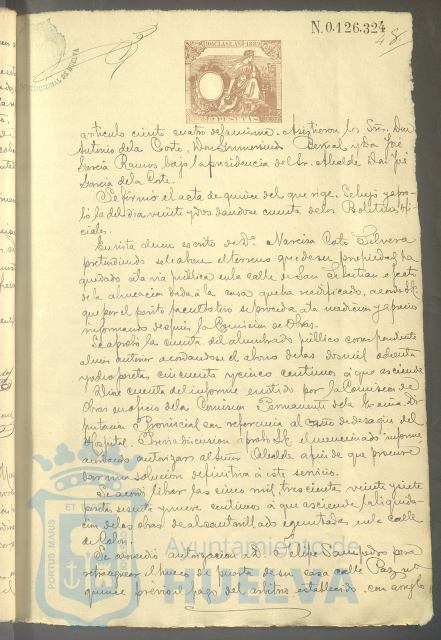 N. 0.126.324
48
10ª CLASE AÑO 1889
PESETAS
articulo ciento cuatro de la misma. Asistieron los Sres. Don
Antonio de la Corte, Don Bernal y Don José
García Ramos bajo la presidencia del Sr. Alcalde Don José
García de la Corte.
Se firmó el acta de quince del que rige. Se leyó y apro-
bó la del dia veinte y dos dandose cuenta de los Boletines ofi-
ciales.
En vista de un escrito de Dª. Narcisa Coto Silvera
pretendiendo se le abone el terreno que de su propiedad ha
quedado á la via pública en la calle de San Sebastian á efecto
de la alineacion dada á la casa que ha reedificado, acordó
que por el perito facultativo se proceda á la medicion y aprecio
informando despues la Comision de Obras.
Se aprobó la cuenta del alumbrado público correspondiente
al mes anterior acordandose el abono de las dos mil ochenta
y ocho pesetas cincuenta y cinco centimos á que asciende.
Dióse cuenta del informe emitido por la Comision de
Obras en oficio de la Comision Permanente de la Excma. Di-
putacion Provincial con referencia al caño de desagüe del
Hospital. Previa discusion aprobó el mencionado informe
acordando autorizar al Señor Alcalde á fin de que procure
dar una solucion definitiva á este servicio.
Se acordó librar las cinco mil trescientas veinte y siete
pesetas sesenta y nueve centimos á que asciende la liquida-
cion de las obras de alcantarillado ejecutadas en la calle
de Colon.
Se concedió autorizacion á D. Felipe Sampedro para
el hueco de puerta de su casa calle Paz nº
quince previo el pago del arbitrio establecido, con arreglo
PORTUS MARIS ET
Ayuntamiento de
HUELVA